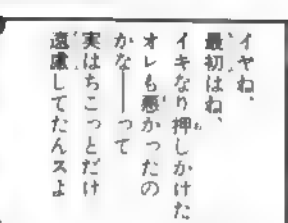 イヤね、
最初はね、
イキなり押しかけた
オレも悪かったの
かな――って
実はちこっとだけ
遠慮してたんスよ